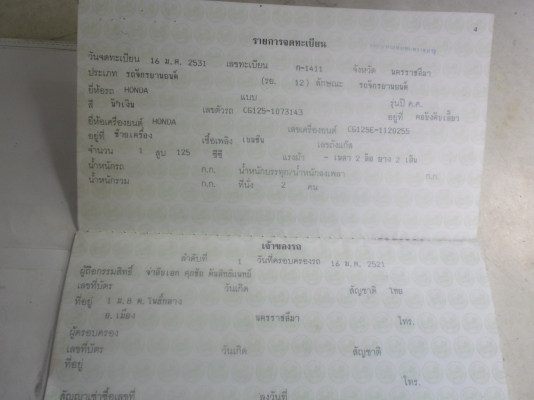 4
รายการจดทะเบียน
วันจดทะเบียน 16 ม.ค. 2531 เลขทะเบียน ก-1411 จังหวัด นครราชสีมา
ประเภท รถจักรยานยนต์ (รย. 12) ลักษณะ รถจักรยานยนต์
ยี่ห้อรถ HONDA แบบ รุ่นปี ค.ศ.
สี น้ำเงิน เลขตัวรถ CG125-1073143 อยู่ที่ คอ
ยี่ห้อเครื่องยนต์ HONDA เลขเครื่องยนต์ CG125E-1120255
อยู่ที่ ข้างเครื่อง เชื้อเพลิง เบนซิน เลขถังแก๊ส
จำนวน 1 สูบ 125 ซีซี แรงม้า - เพลา 2 ล้อ ยาง 2 เส้น
น้ำหนักรถ ก.ก. น้ำหนักบรรทุก/น้ำหนักลงเพลา ก.ก.
น้ำหนักรวม ก.ก. ที่นั่ง 2 คน
เจ้าของรถ
ลำดับที่ 1 วันที่ครอบครองรถ 16 ม.ค. 2531
ผู้ถือกรรมสิทธิ์
เลขที่บัตร วันเกิด สัญชาติ ไทย
ที่อยู่ 1 ม.6 ต. โพธิ์กลาง
อ. เมือง นครราชสีมา โทร.
ผู้ครอบครอง
เลขที่บัตร วันเกิด สัญชาติ
ที่อยู่
โทร.
สัญญาเช่าซื้อเลขที่ ลงวันที่